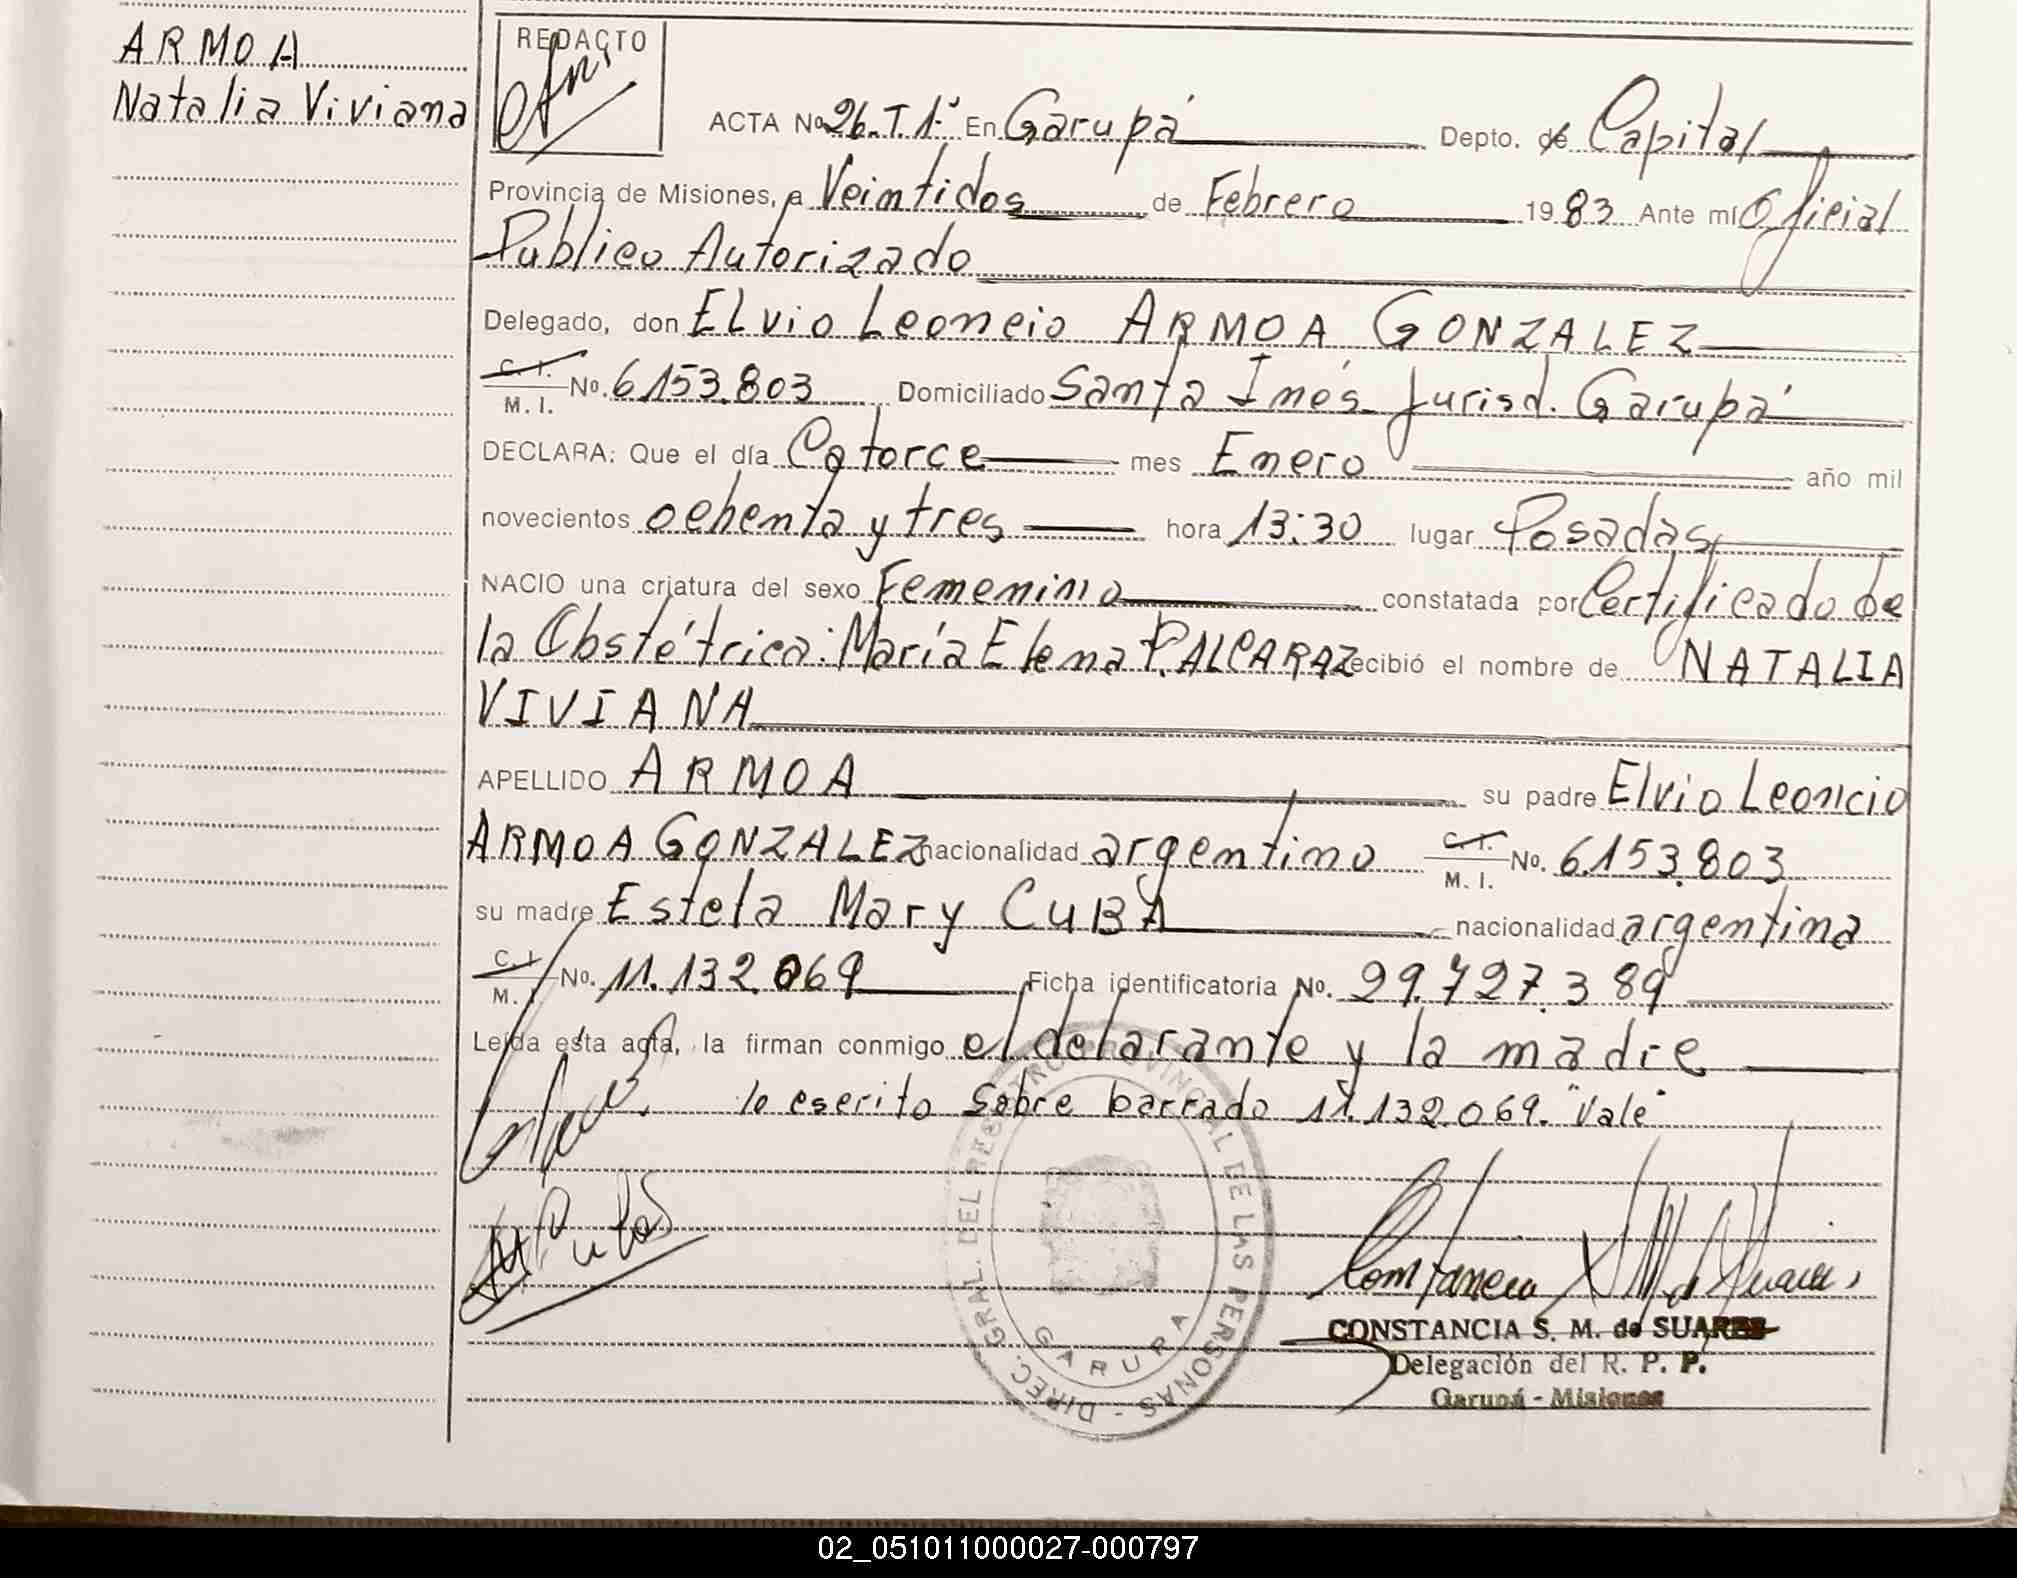 ARMOA
Natalia Viviana
REDACTO
ACTA No 26.T 1º En Garupá Depto. de Capital
Provincia de Misiones, a Veintidos de Febrero 1983 Ante mí Oficial
Publico Autorizado
Delegado, don ELvio Leoncio ARMOA GONZALEZ
C. I. M. I. No. 6153.803 Domiciliado Santa Inés Jurisd. Garupá
DECLARA: Que el día Catorce mes Enero año mil
novecientos ochenta y tres hora 13:30 lugar Posadas
NACIO una criatura del sexo Femenino constatada por Certificado de
la Obstétrica: María Elena P. ALCARAZ recibió el nombre de NATALIA
VIVIANA
APELLIDO ARMOA su padre Elvio Leoncio
ARMOA GONZALEZ nacionalidad argentino C. I. M. I. No. 6.153.803
su madre Estela Mary CUBA nacionalidad argentina
C. I. M. I. No. 11.132.069 Ficha identificatoria No. 29.727.389
Leída esta acta, la firman conmigo el delarante y la madre
lo escrito sobre barrado 11.132.069. "Vale"
DIREC. GRAL. DEL REGISTRO PROVINCIAL DE LAS PERSONAS -
GARUPA
CONSTANCIA S. M. de SUARES
Delegación del R. P. P.
Garupá - Misiones
02_051011000027-000797